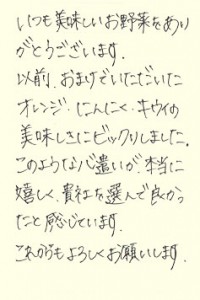 いつも美味しいお野菜をあり
がとうございます.
以前、おまけでいただいた
オレンジ・にんにく・キウイの
美味しさにビックリしました.
このような心遣いが、本当に
嬉しく、貴社を選んで良かっ
たと感じています.
これからもよろしくお願いします.